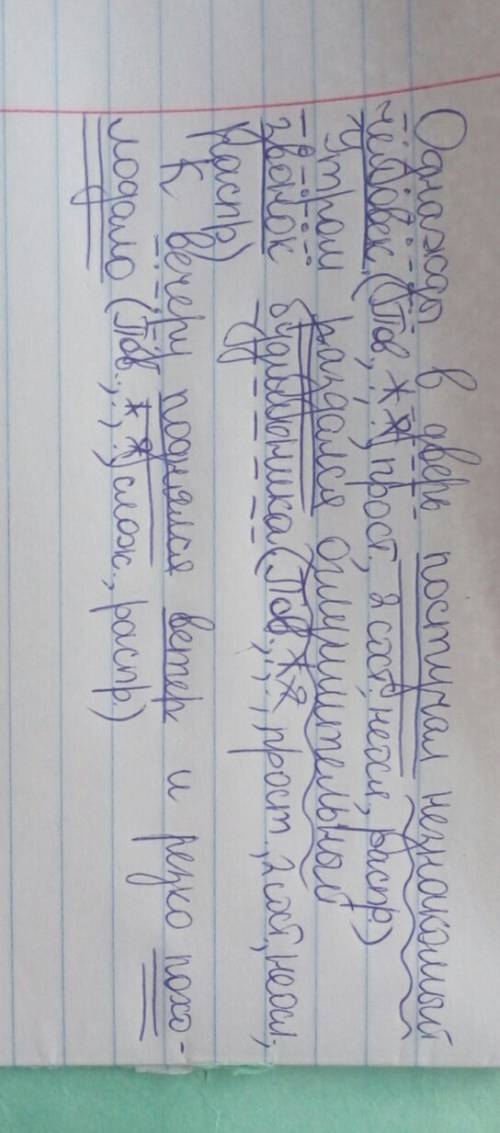 Однажды в дверь постучал незнакомый
человек. (Пов., прост., 2 сост., неосл., распр.)
Утром раздался оглушительный
звонок будильника (Пов., прост., 2 сост., неосл.,
распр.)
К вечеру поднялся ветер и резко похо-
лодало (Пов., сложн., распр.)